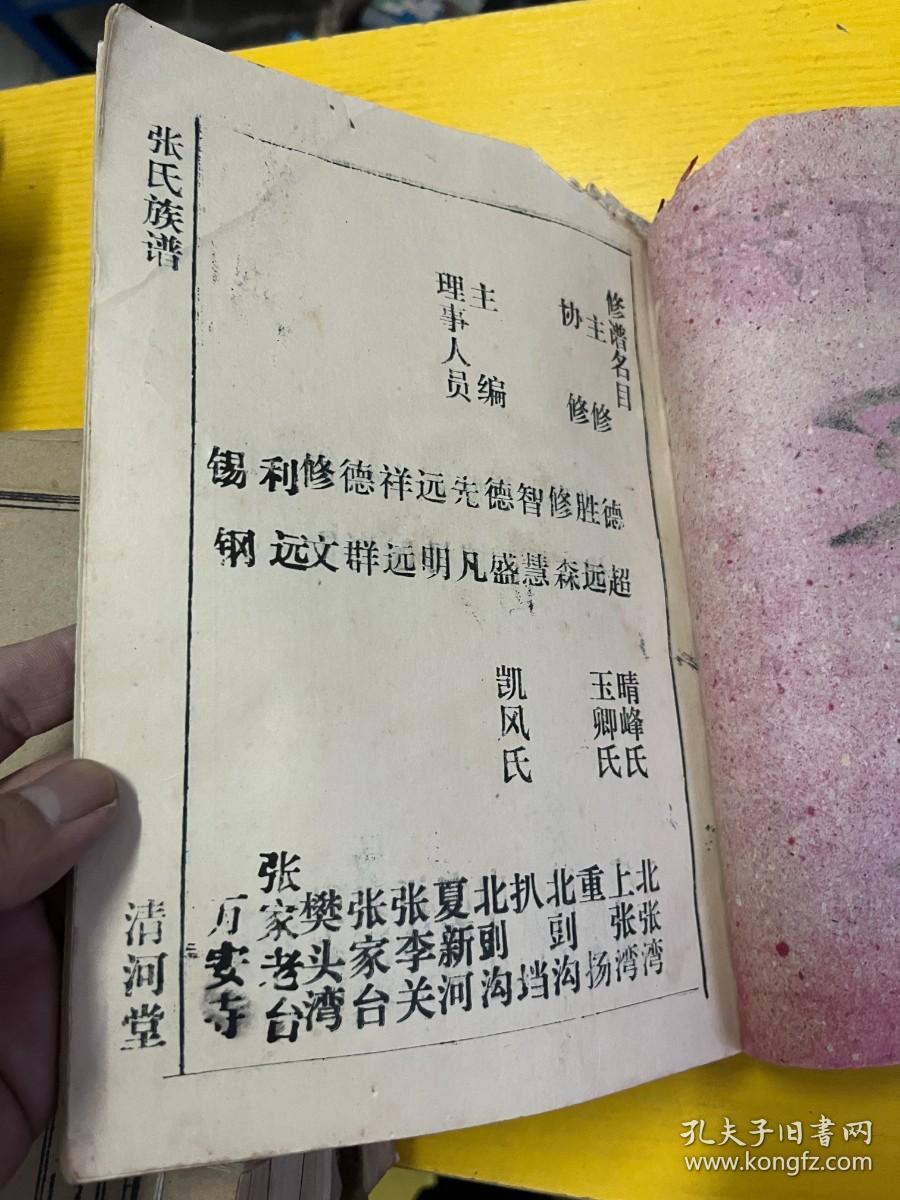 修谱名目
主修 德超 晴峰氏 北张湾
协修 胜远 玉卿氏 上张湾
修森 重扬
智慧 北剅沟
主编 德盛 凯风氏 扒垱
理事人员 先凡 北剅沟
远明 夏新河
祥远 张李关
德群 张家台
修文 樊头湾
利远 张家老台
锡钢 万安寺
张氏族谱
二
清河堂
孔夫子旧书网
www.kongfz.com